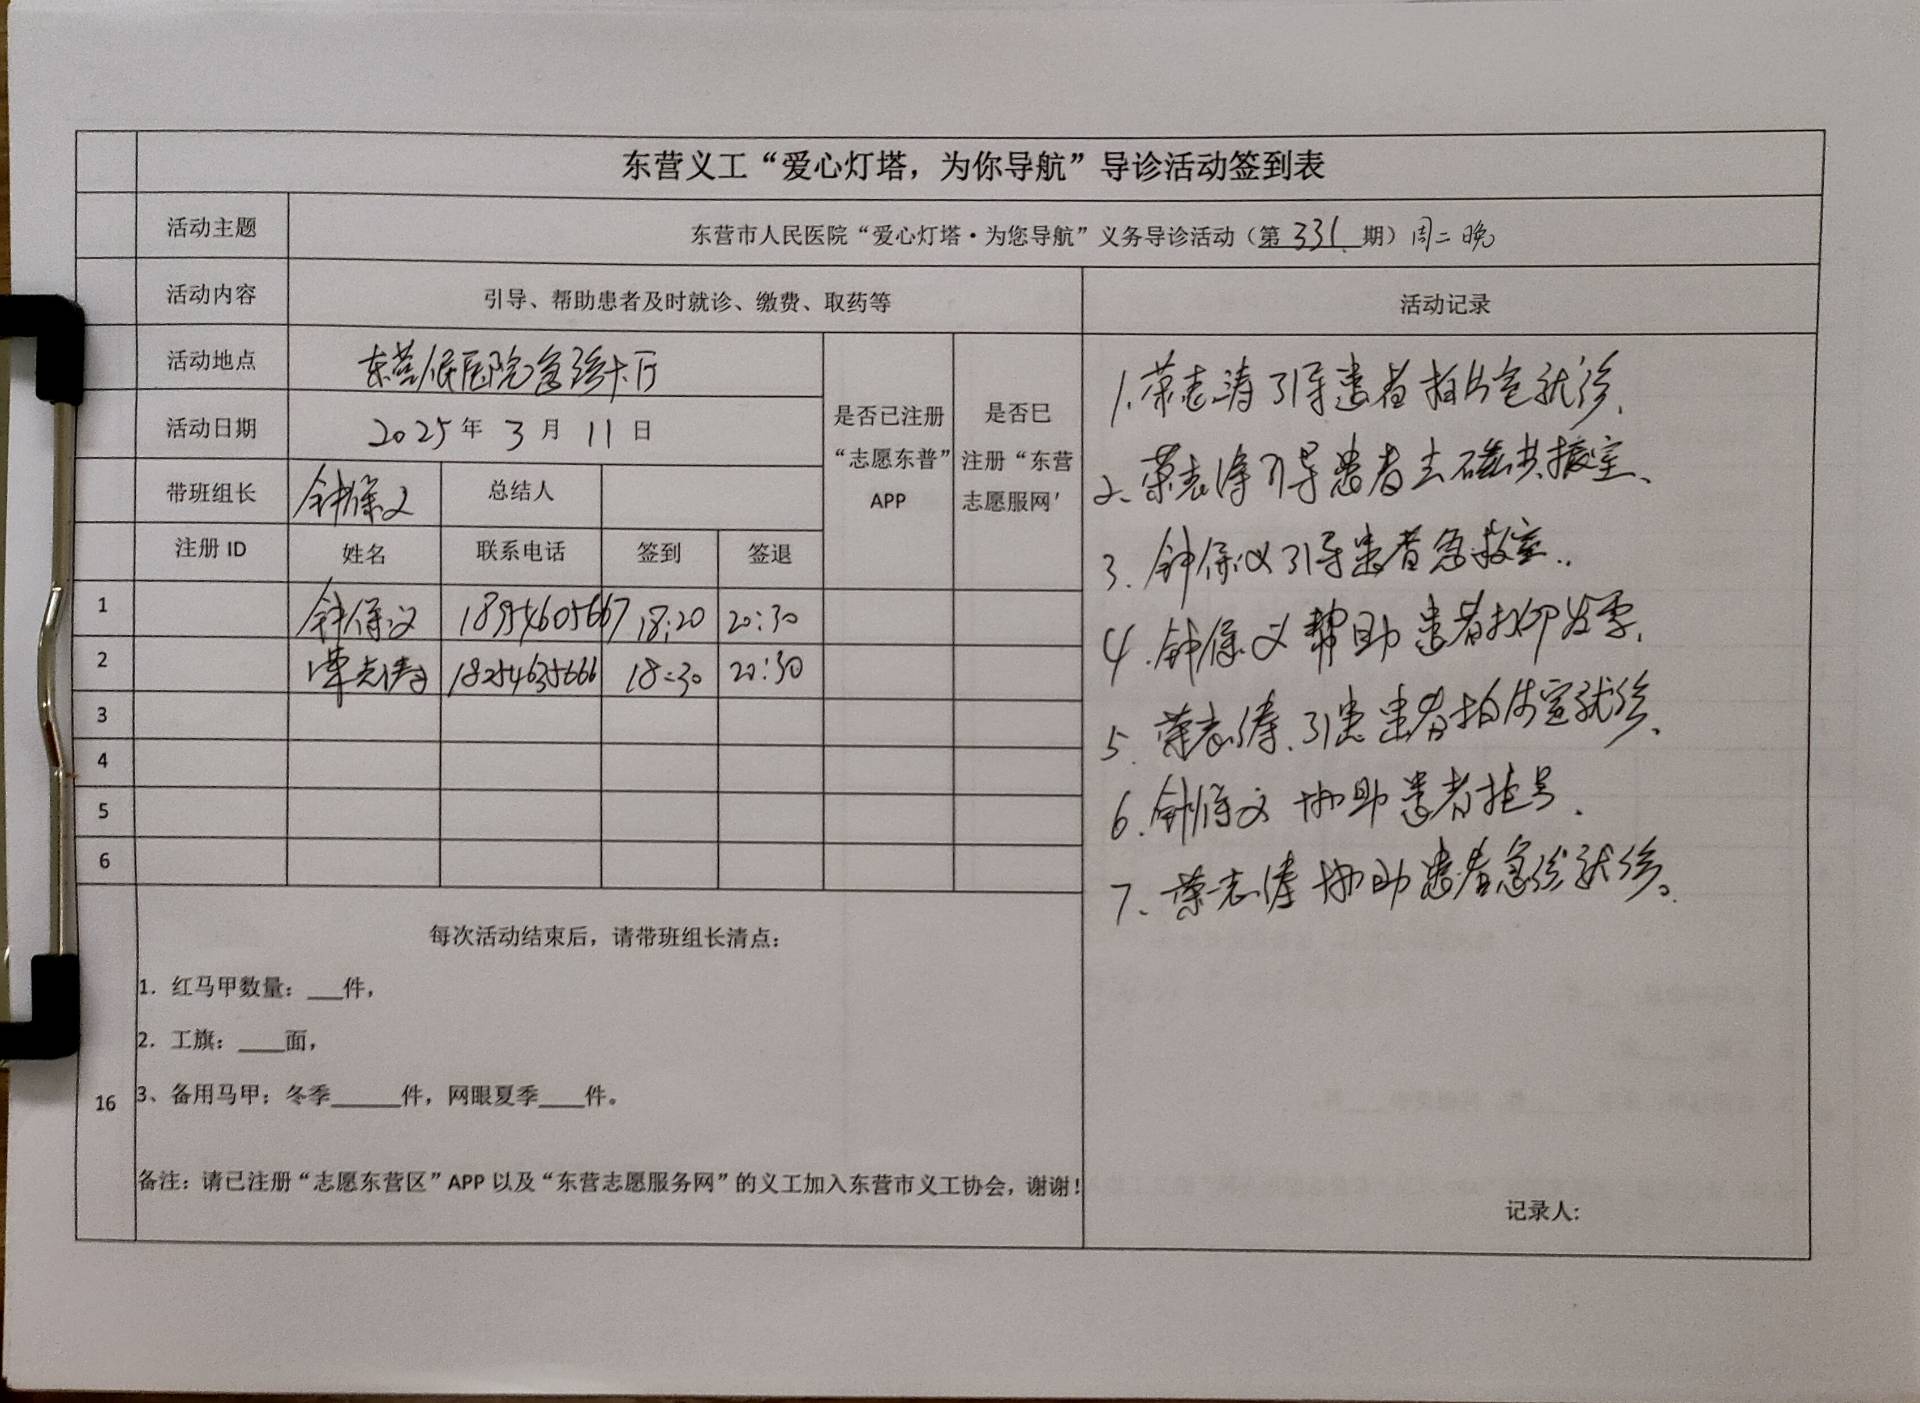 东营义工“爱心灯塔，为你导航”导诊活动签到表
活动主题 东营市人民医院“爱心灯塔·为您导航”义务导诊活动（第 331 期）周二晚
活动内容 引导、帮助患者及时就诊、缴费、取药等 活动记录
活动地点 东营人民医院急诊大厅
活动日期 2025年 3月 11日
是否已注册“志愿东普”APP
是否已注册“东营志愿服网'
带班组长 钟保义 总结人
注册 ID 姓名 联系电话 签到 签退
1 钟保义 18954605667 18:20 20:30
2 荣志涛 18254635666 18:30 20:30
3
4
5
6
1.荣志涛引导患者拍片室就诊.
2、荣志涛引导患者去磁共振室、
3.钟保义引导患者急救室..
4.钟保义帮助患者打印发票.
5.荣志涛.引患患者拍片室就诊.
6.钟保义协助患者挂号.
7、荣志涛协助患者急诊就诊。
16
每次活动结束后，请带班组长清点：
1. 红马甲数量：___件，
2. 工旗：____面，
3、备用马甲：冬季______件，网眼夏季____件。
备注：请已注册“志愿东营区”APP 以及“东营志愿服务网”的义工加入东营市义工协会，谢谢！
记录人: